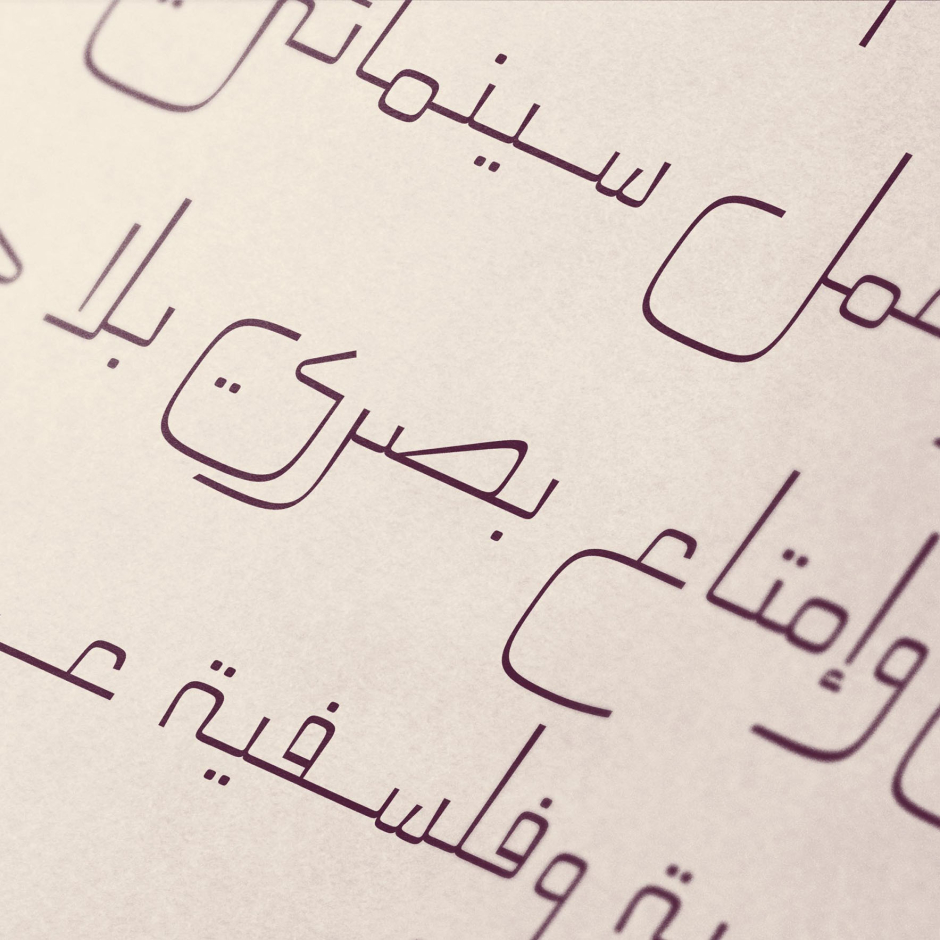 عمل سينمائي
وإمتاع بصري بلا
وفلسفية